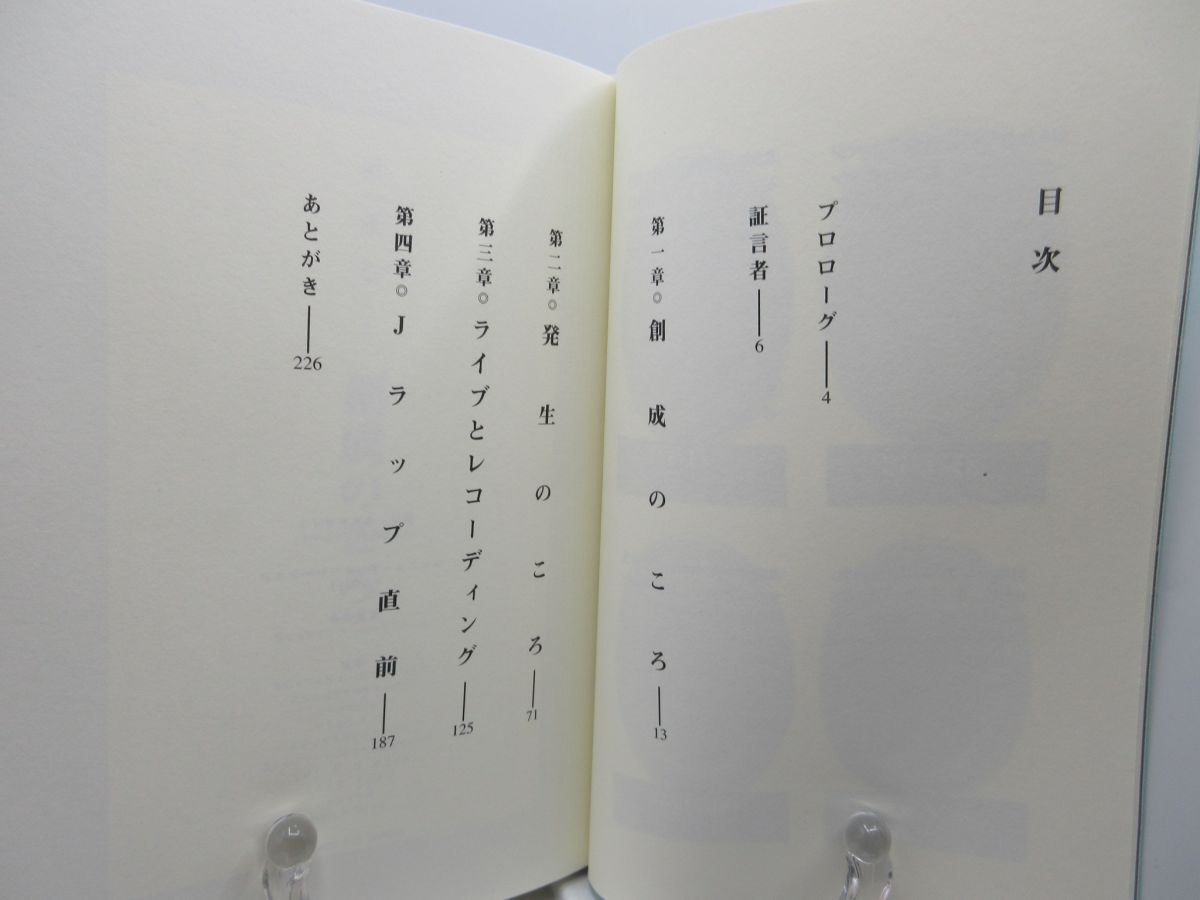 目次
プロローグ――4
証言者――6
第一章◎創成のころ――13
第二章◎発生のころ――71
第三章◎ライブとレコーディング――125
第四章◎Jラップ直前――187
あとがき――226